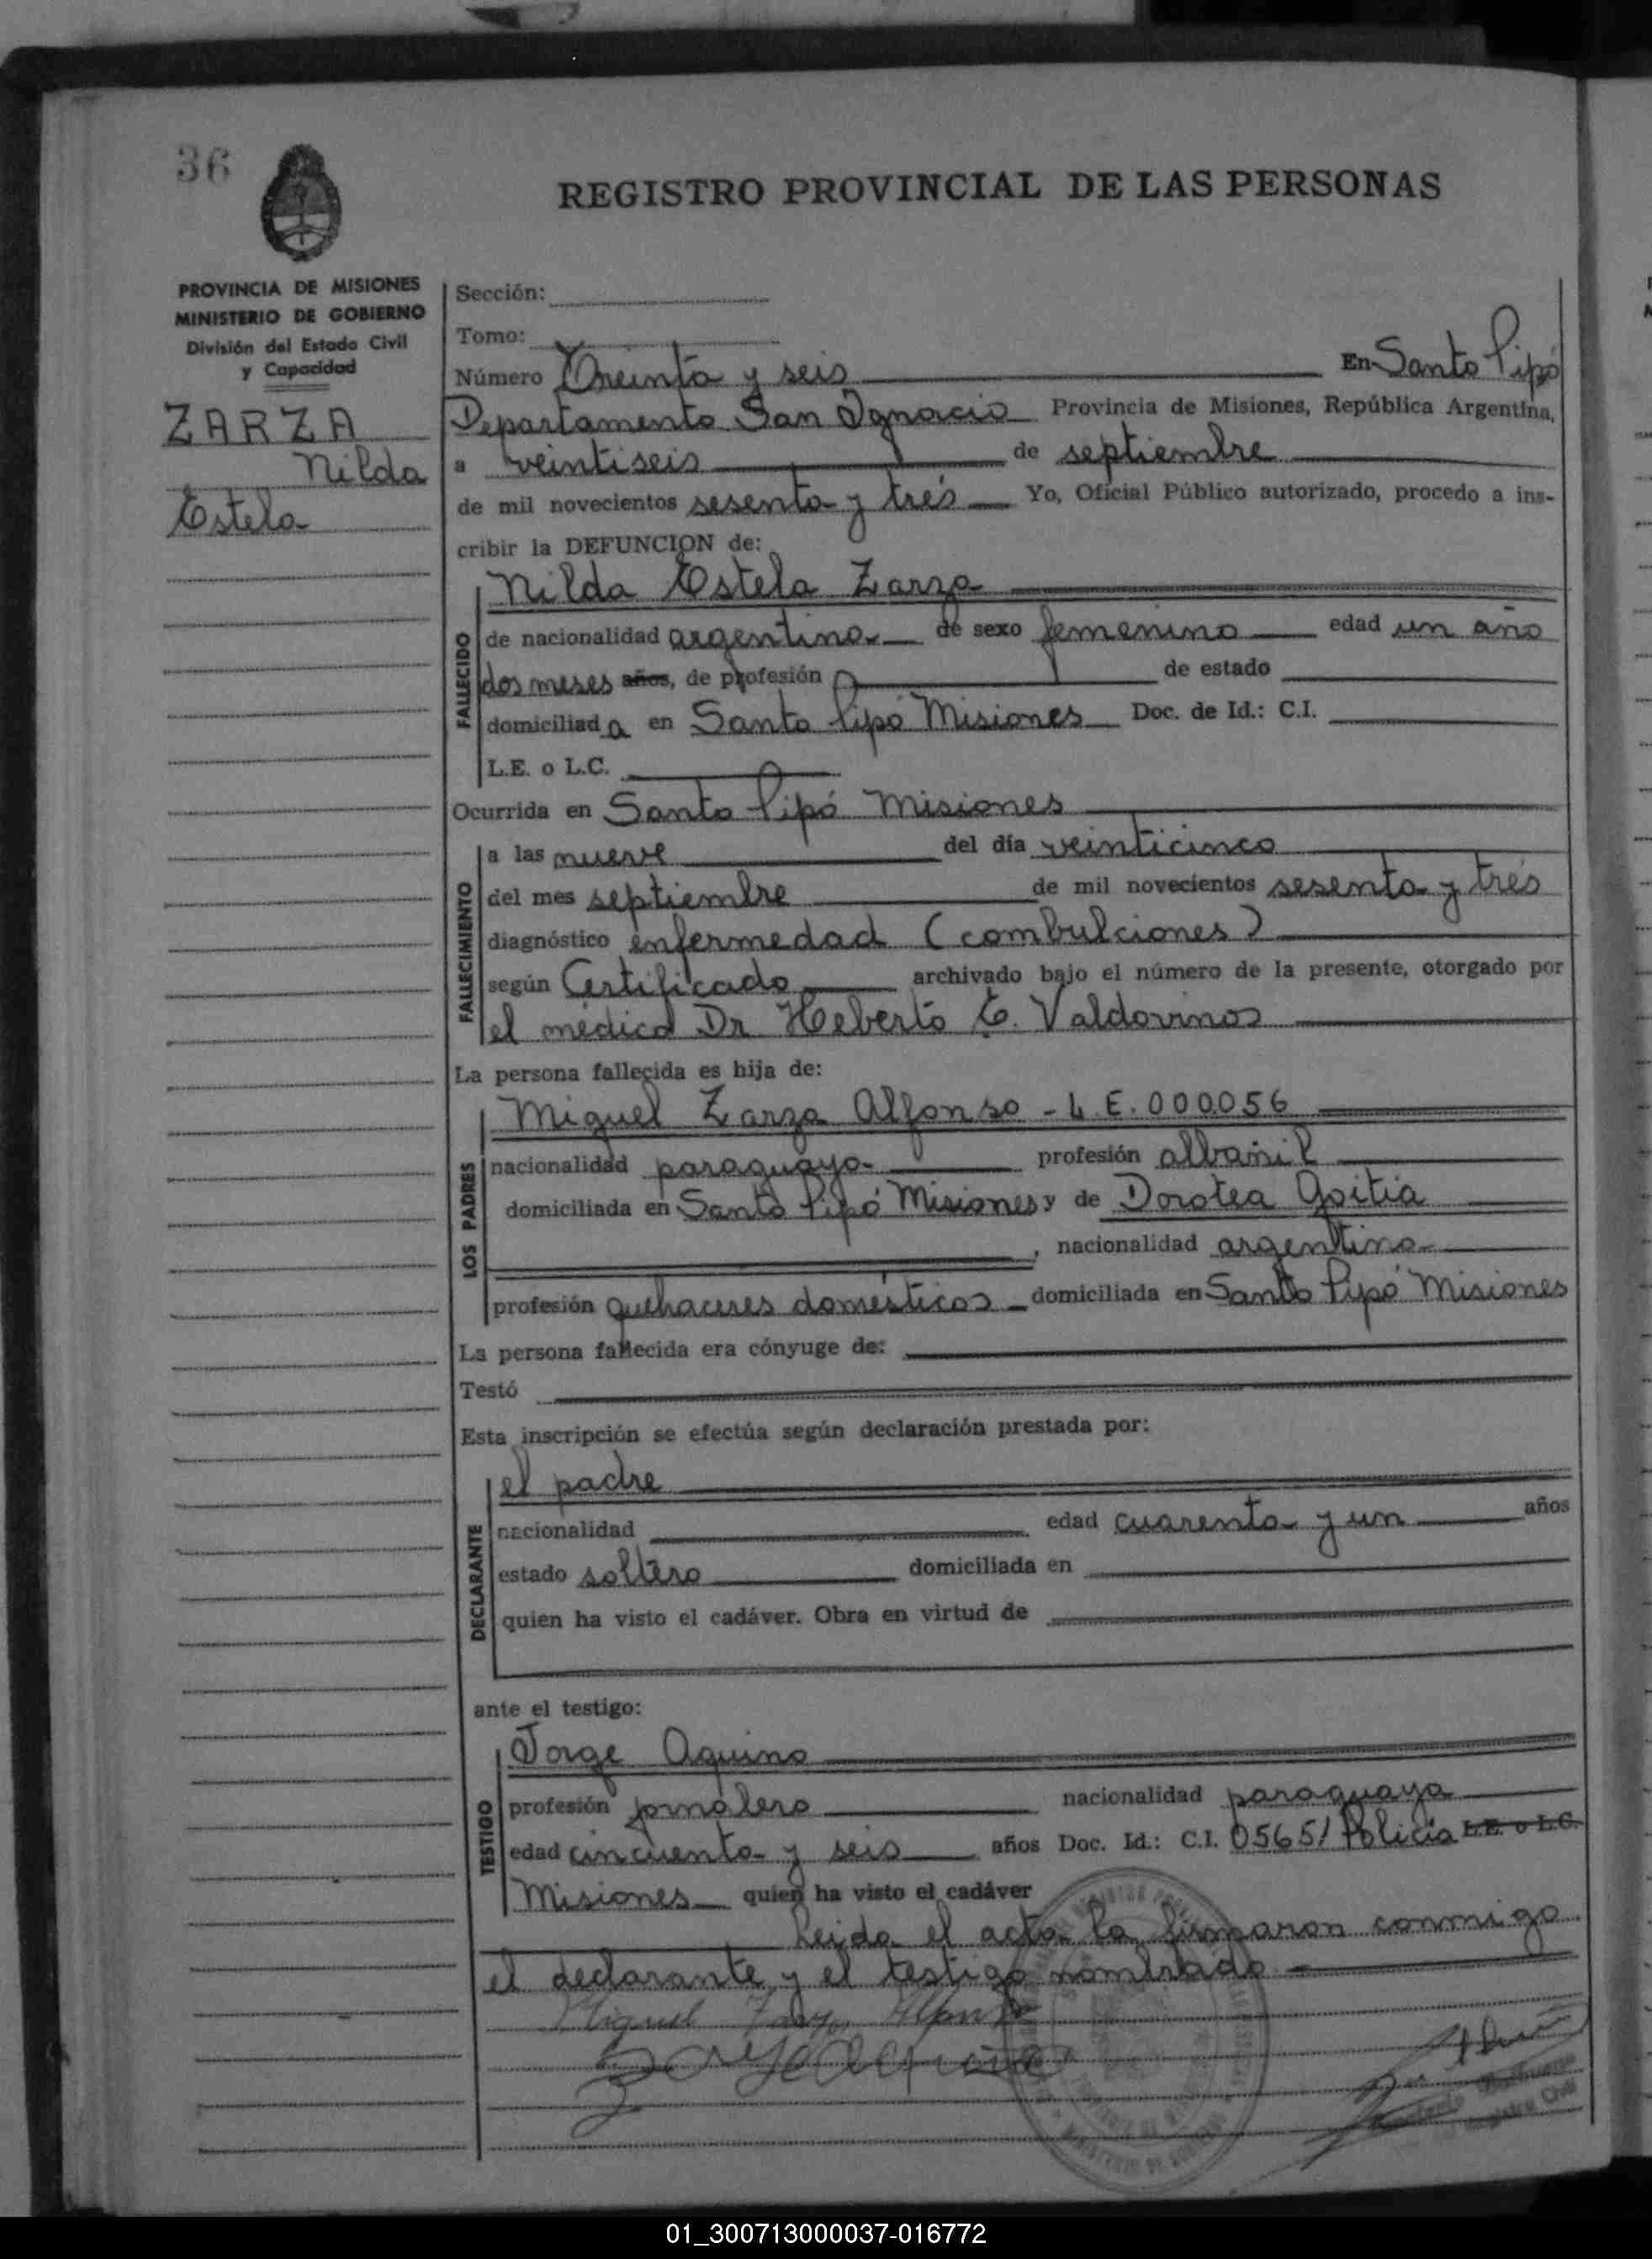 36
REGISTRO PROVINCIAL DE LAS PERSONAS
PROVINCIA DE MISIONES
MINISTERIO DE GOBIERNO
División del Estado Civil
y Capacidad
ZARZA
Nilda
Estela
Sección:
Tomo:
Número Treinta y seis En Santo Pipó
Departamento San Ignacio Provincia de Misiones, República Argentina,
a veintiseis de septiembre
de mil novecientos sesenta y trés Yo, Oficial Público autorizado, procedo a ins-
cribir la DEFUNCION de:
FALLECIDO
Nilda Estela Zarza
de nacionalidad argentina de sexo femenino edad un año
dos meses años, de profesión de estado
domiciliad a en Santo Pipó Misiones Doc. de Id.: C.I.
L.E. o L.C.
Ocurrida en Santo Pipó Misiones
FALLECIMIENTO
a las nueve del día veinticinco
del mes septiembre de mil novecientos sesenta y trés
diagnóstico enfermedad (combulciones)
según Certificado archivado bajo el número de la presente, otorgado por
el médico Dr Heberto E. Valdovinos
La persona fallecida es hija de:
LOS PADRES
Miguel Zarza Alfonso - L.E. 000056
nacionalidad paraguaya profesión albañil
domiciliada en Santo Pipó Misiones y de Dorotea Goitia
, nacionalidad argentina
profesión quehaceres domésticos domiciliada en Santo Pipó Misiones
La persona fallecida era cónyuge de:
Testó
Esta inscripción se efectúa según declaración prestada por:
DECLARANTE
el padre
nacionalidad edad cuarenta y un años
estado soltero domiciliada en
quien ha visto el cadáver. Obra en virtud de
ante el testigo:
TESTIGO
Jorge Aquino
profesión jornalero nacionalidad paraguaya
edad cincuenta y seis años Doc. Id.: C.I. 05651 Policía L.E. o L.C.
Misiones quien ha visto el cadáver
Leida el acta la firmaron conmigo
el declarante y el testigo nombrado
Miguel Zarza Alfonso
Registro Civil
01_300713000037-016772